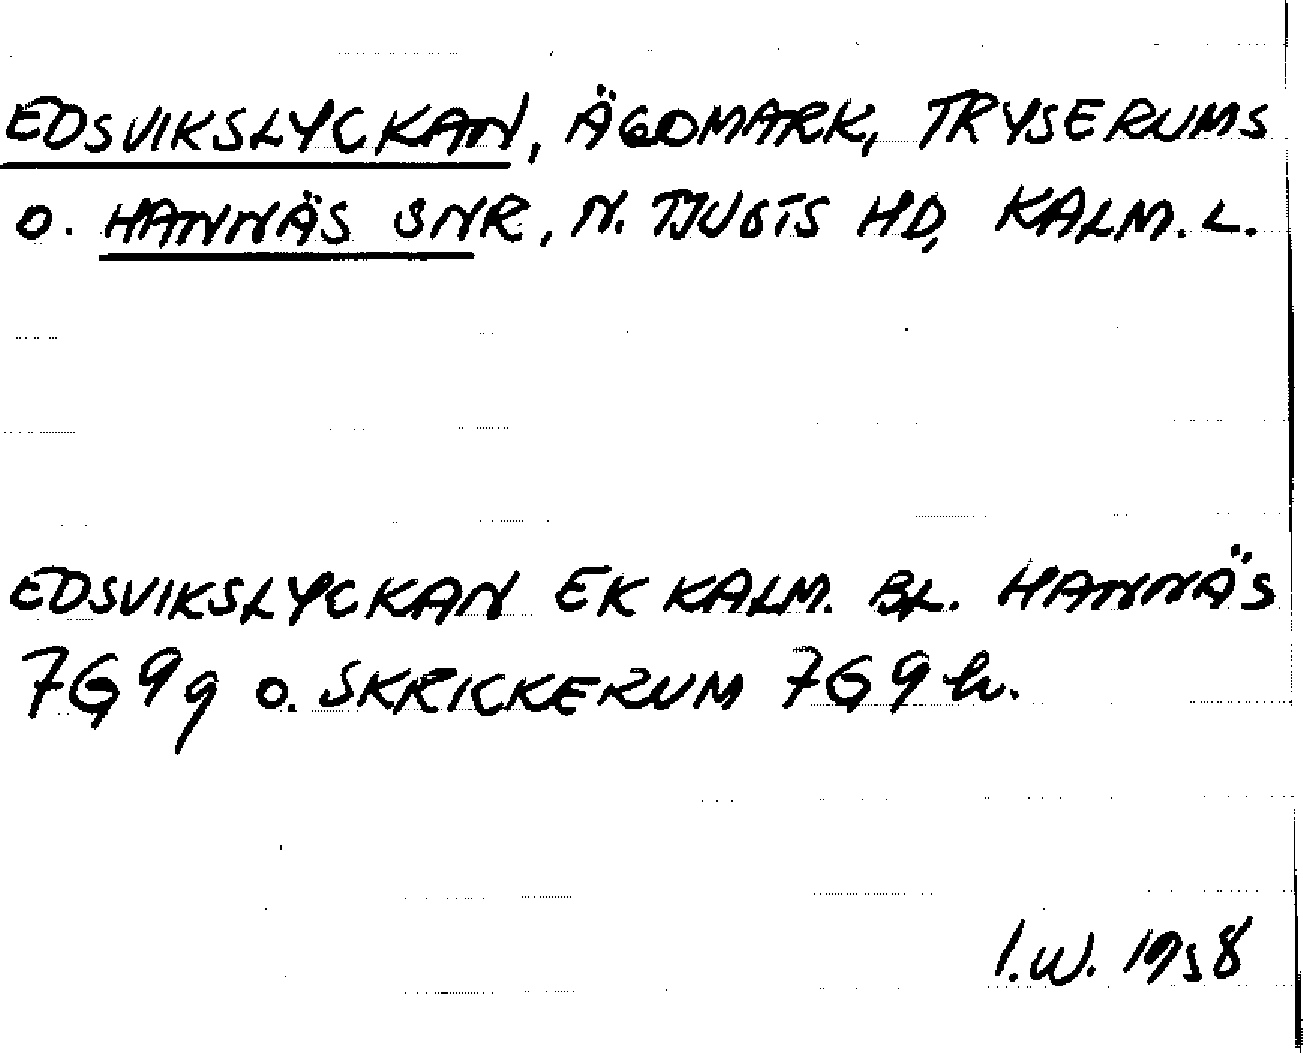 EDSVIKSLYCKAN, ÄGOMARK, TRYSERUMS
O. HANNÄS SNR, N. TJUSTS HD, KALM. L.
EDSVIKSLYCKAN EK KALM. BL. HANNÄS
7G9g O. SKRICKERUM 7G9h.
I.W. 1958